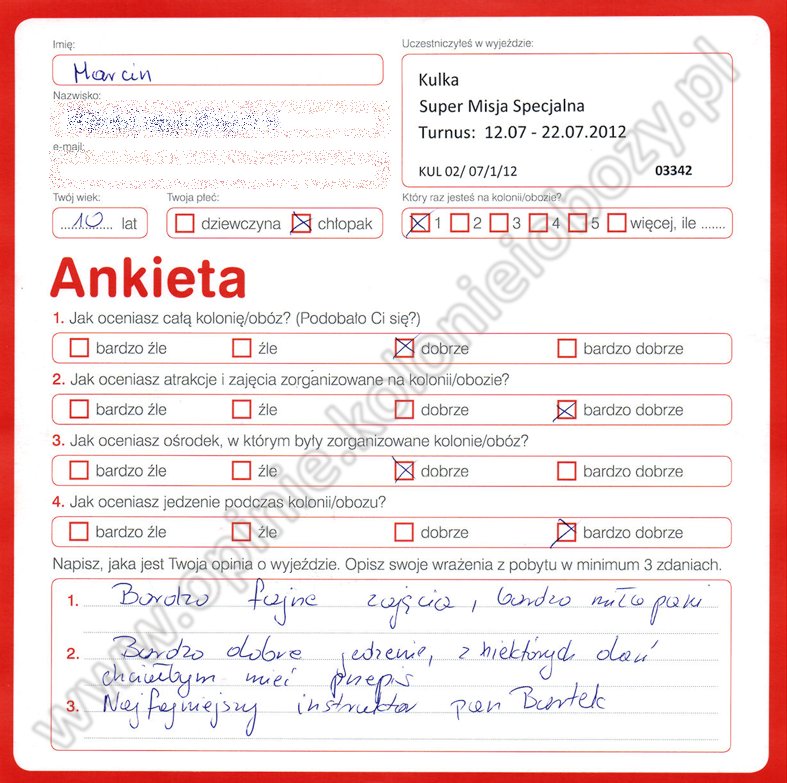 Imię:
Uczestniczyłeś w wyjeździe:
Marcin
Kulka
Super Misja Specjalna
Turnus: 12.07 - 22.07.2012
KUL 02/ 07/1/12 03342
Nazwisko:
e-mail:
Twój wiek:
Twoja płeć:
Który raz jesteś na kolonii/obozie?
10 lat
dziewczyna chłopak
1 2 3 4 5 więcej, ile .......
Ankieta
1. Jak oceniasz całą kolonię/obóz? (Podobało Ci się?)
bardzo źle źle dobrze bardzo dobrze
2. Jak oceniasz atrakcje i zajęcia zorganizowane na kolonii/obozie?
bardzo źle źle dobrze bardzo dobrze
3. Jak oceniasz ośrodek, w którym były zorganizowane kolonie/obóz?
bardzo źle źle dobrze bardzo dobrze
4. Jak oceniasz jedzenie podczas kolonii/obozu?
bardzo źle źle dobrze bardzo dobrze
Napisz, jaka jest Twoja opinia o wyjeździe. Opisz swoje wrażenia z pobytu w minimum 3 zdaniach.
1. Bardzo fajne zajęcia, bardzo miła pani
2. Bardzo dobre jedzenie, z niektórych dań
chciałbym mieć przepis
3. Najfajniejszy instruktor pan Bartek
www.opinie.kolonieiobozy.pl